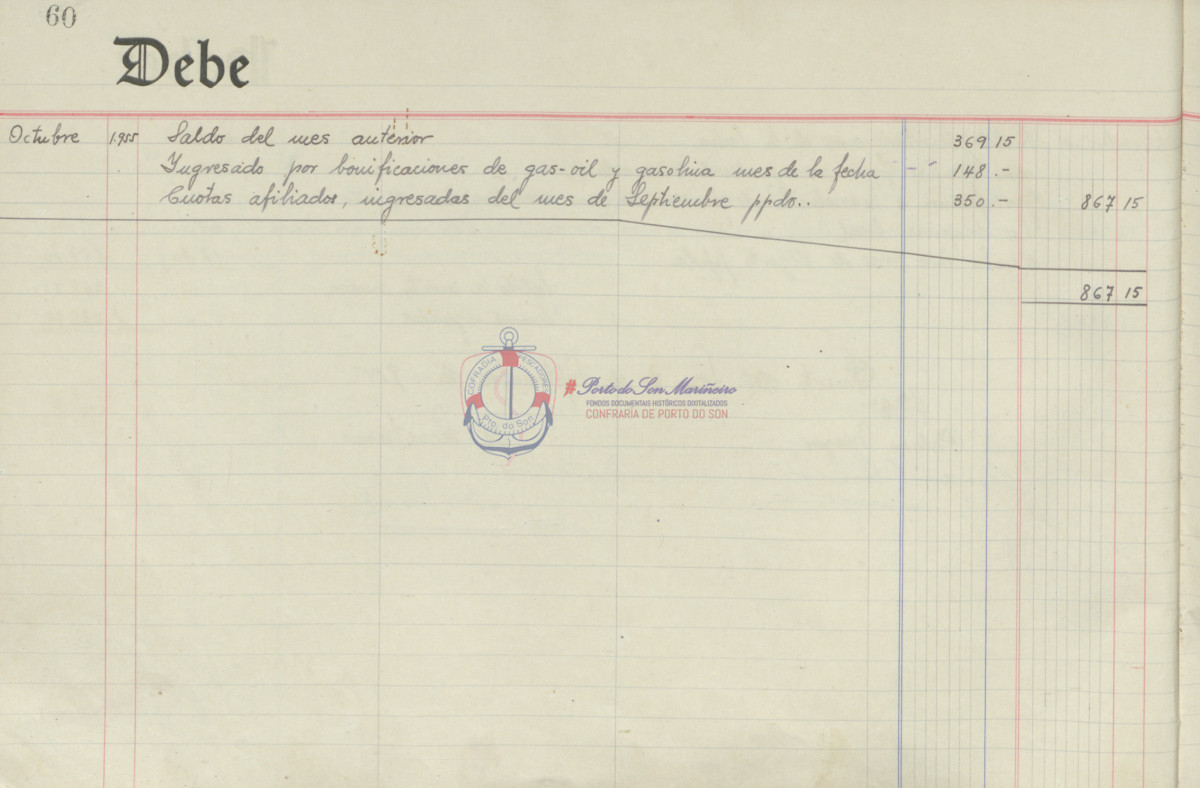 60
Debe
Octubre 1.955 Saldo del mes anterior 369 15
Ingresado por bonificaciones de gas-oil y gasolina mes de la fecha - " 148.-
Cuotas afiliados, ingresadas del mes de Septiembre ppdo.. 350.- 867 15
867 15
COFRADIA PESCADORES
Pto. do Son
# Porto do Son Mariñeiro
FONDOS DOCUMENTAIS HISTÓRICOS DIXITALIZADOS
CONFRARÍA DE PORTO DO SON